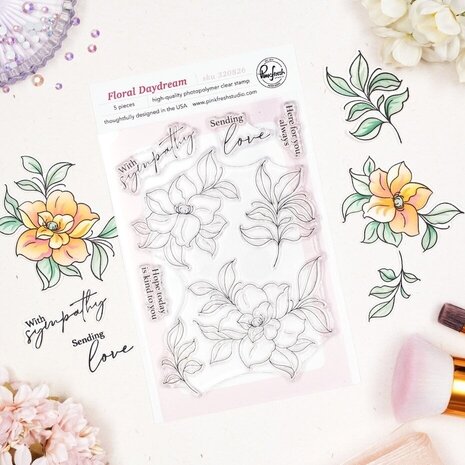 Floral Daydream
sku 320826
Pinkfresh
5 pieces
high-quality photopolymer clear stamp
thoughtfully designed in the USA
www.pinkfreshstudio.com
With
sympathy
Sending
love
Here for you,
always
Hope today
is kind to you
With
sympathy
Sending
love